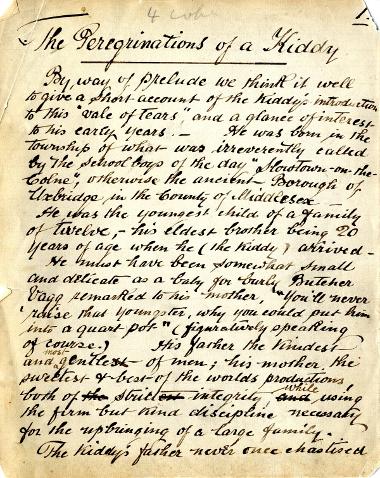 1.
The Peregrinations of a Kiddy
By way of prelude we think it well
to give a short account of the Kiddy's introduction
to this "vale of tears", and a glance of interest
to his early years. — He was born in the
township of what was irreverently called
by the school boys of the day "Slowtown-on-the-
Colne", otherwise the ancient Borough of
Uxbridge, in the County of Middlesex
He was the youngest child of a family
of twelve, – his eldest brother being 20
years of age when he (the Kiddy) arrived –
He must have been somewhat small
and delicate as a baby for burly Butcher
Fagg remarked to his mother, "You'll never
'raise that youngster, why you could put him
into a quart pot" (figuratively speaking
of course.) His father the kindest
and most gentlest of men; his mother, the
sweetest & best of the worlds productions
both of the integrity, and while using
the firm but kind discipline necessary
for the upbringing of a large family.
The Kiddy's father never once chastised